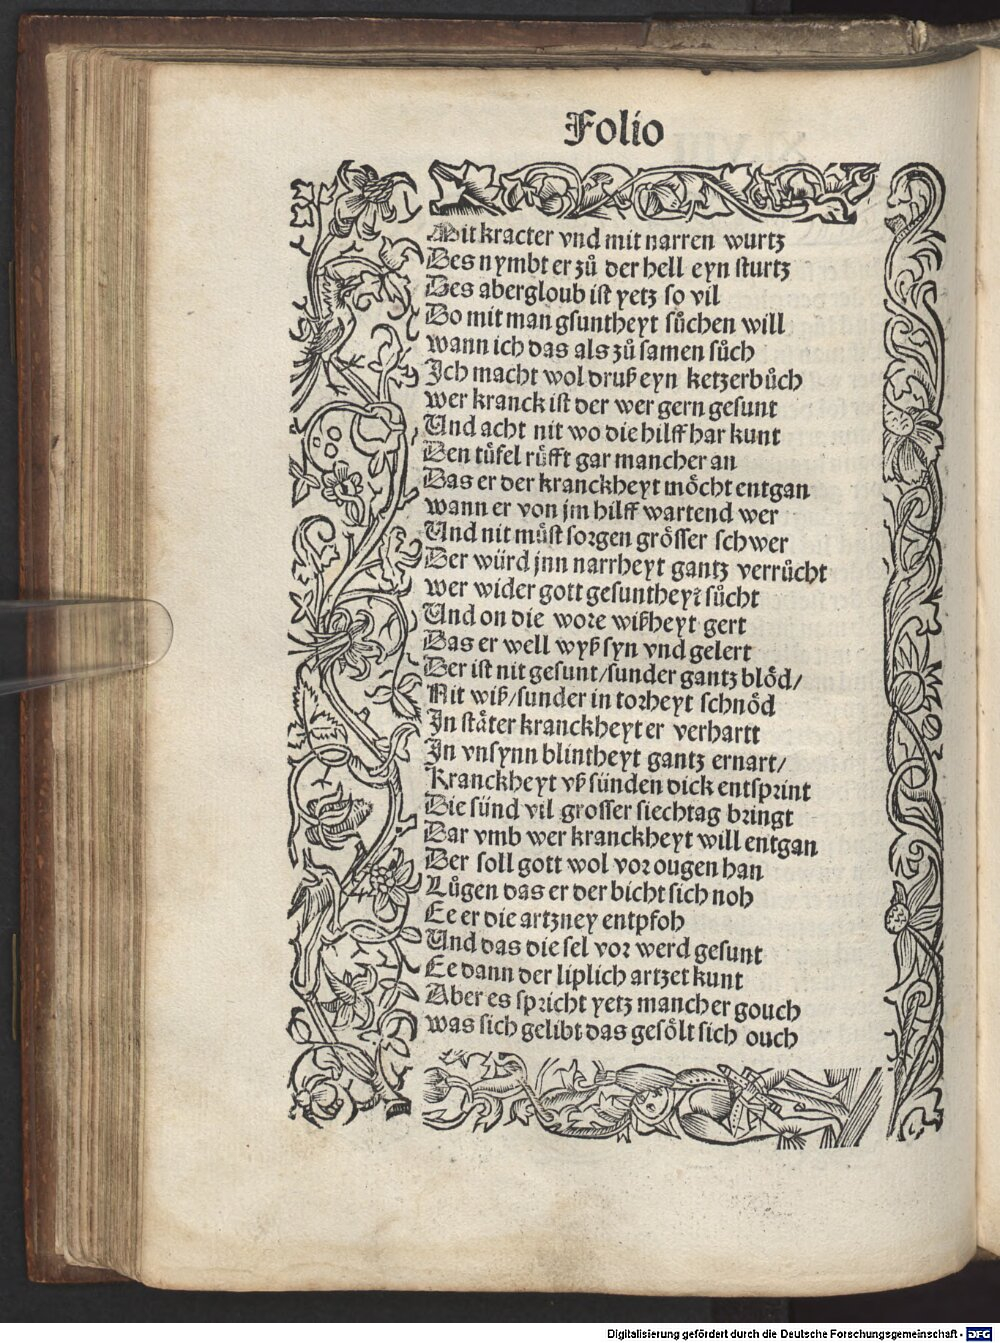 Folio
Mit kracter vnd mit narren wurtz
Des nymbt er zuͦ der hell eyn sturtz
Des abergloub ist yetz so vil
Do mit man gsuntheyt suͦchen will
wann ich das als zuͦ samen suͦch
Ich macht wol druß eyn ketzerbuͦch
wer kranck ist der wer gern gesunt
Und acht nit wo die hilff har kunt
Den tüfel rüfft gar mancher an
Das er der kranckheyt möcht entgan
wann er von jm hilff wartend wer
Und nit muͤst sorgen grösser schwer
Der würd jnn narrheyt gantz verruͤcht
wer wider gott gesuntheyt suͤcht
Und on die wore wißheyt gert
Das er well wyß syn vnd gelert
Der ist nit gesunt/sunder gantz blöd/
Nit wiß/sunder in torheyt schnöd
In stäter kranckheyt er verhartt
In vnsynn blintheyt gantz ernart/
Kranckheyt vß sünden dick entsprint
Die sünd vil grosser siechtag bringt
Dar vmb wer kranckheyt will entgan
Der soll gott wol vor ougen han
Luͦgen das er der bicht sich noh
Ee er die artzney entpfoh
Und das die sel vor werd gesunt
Ee dann der liplich artzet kunt
Aber es spricht yetz mancher gouch
was sich gelibt das gesölt sich ouch
Digitalisierung gefördert durch die Deutsche Forschungsgemeinschaft - DFG